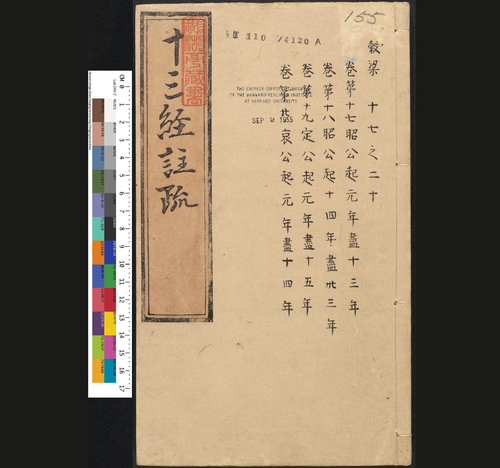 155
穀梁 十七之二十
卷第十七昭公起元年盡十三年
卷第十八昭公起十四年盡卅三年
卷第十九定公起元年盡十五年
卷第廿哀公起元年盡十四年
74120 A
THE CHINESE-JAPANESE LIBRARY
OF THE HARVARD-YENCHING INSTITUTE
AT HARVARD UNIVERSITY
SEP 1955
十三經註疏
CM 0 1 2 3 4 5 6 7 8 9 10 11 12 13 14 15 16 17